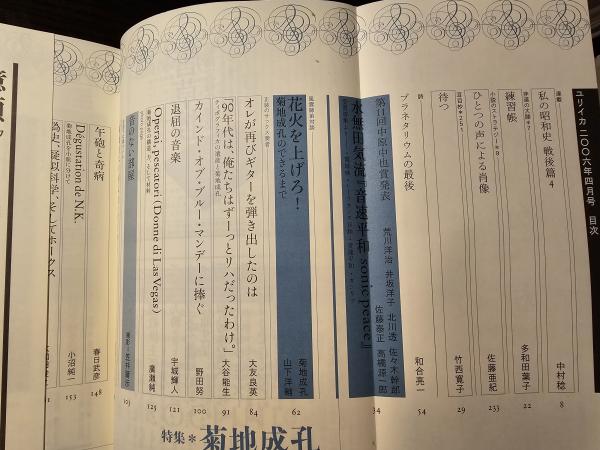 ユリイカ 二〇〇六年四月号 目次
連載
私の昭和史・戦後篇 4
中村稔
8
練習帳
多和田葉子
22
ひとつの声による肖像
佐藤亜紀
233
待つ
竹西寛子
29
詩
プラネタリウムの最後
和合亮一
54
第11回中原中也賞発表
荒川洋治 井坂洋子 北川透 佐々木幹郎 佐藤泰正 高橋源一郎
水無田気流『音速平和 sonic peace』
34
花火を上げろ!
菊地成孔のできるまで
菊地成孔
山下洋輔
62
オレが再びギターを弾き出したのは
大友良英
84
「90年代は、俺たちはずーっとリハだったわけ。」
大谷能生
91
カインド・オブ・ブルー・マンデーに捧ぐ
野田努
100
退屈の音楽
宇城輝人
121
Operai, pescatori (Donne di Las Vegas)
廣瀬純
125
音のない部屋
103
午砲と奇病
春日武彦
148
Dégustation de N.K.
小沼純一
153
偽史、疑似科学、そしてホークス
特集*菊地成孔